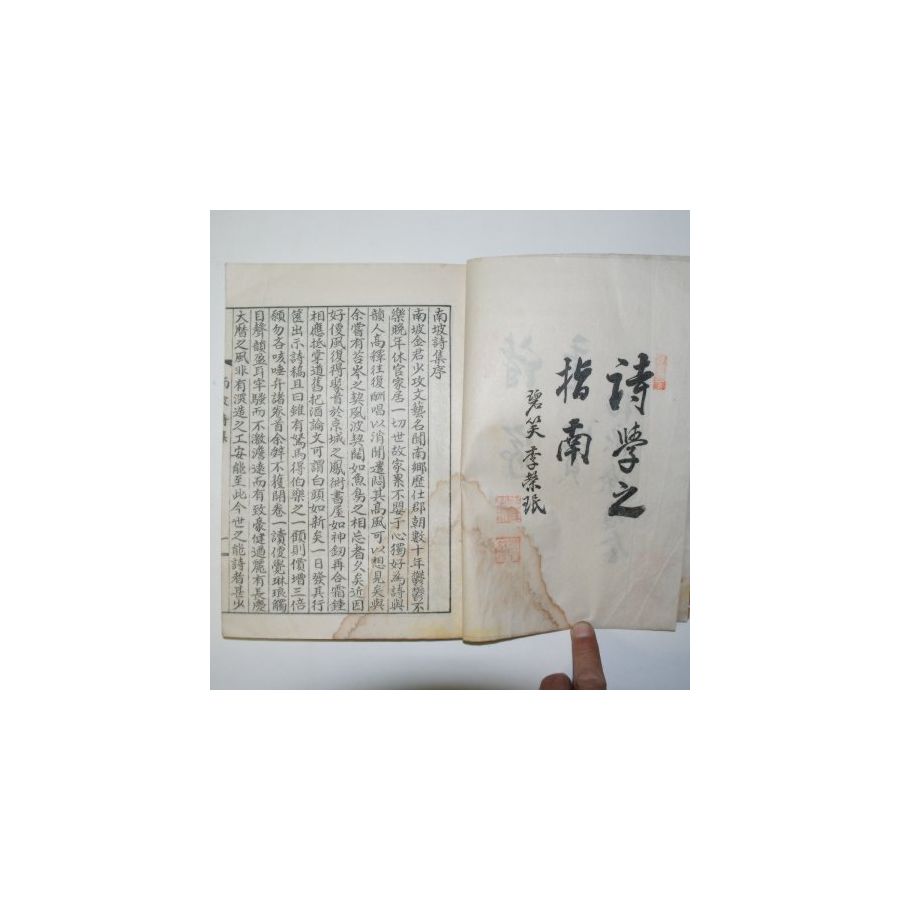 詩學之
指南
碧笑 李榮珉
南坡詩集序
南坡金君少攻文藝名聞南鄉歷仕郡朝數十年鬱鬱不
樂晚年休官家居一切世故家累不嬰于心獨好為詩與
韻人高釋往復酬唱以消閒遣悶其高風可以想見矣與
余嘗有苔岑之契風波契闊如魚鳥之相忘者久矣近因
好便風復得聚首於京城之鳳術書屋如神釰再合霜鍾
相應抵掌道舊把酒論文可謂白頭如新矣一日發其行
篋出示詩稿且曰雖有駑馬得伯樂之一顧則價增三倍
願勿吝咳唾弁諸卷首余辭不獲開卷一讀便覺琳琅觸
目聲韻盈耳字騷而不激澹遠而有致豪健遒麗有長慶
大曆之風非有深造之工安能至此今世之能詩者甚少
南坡詩集